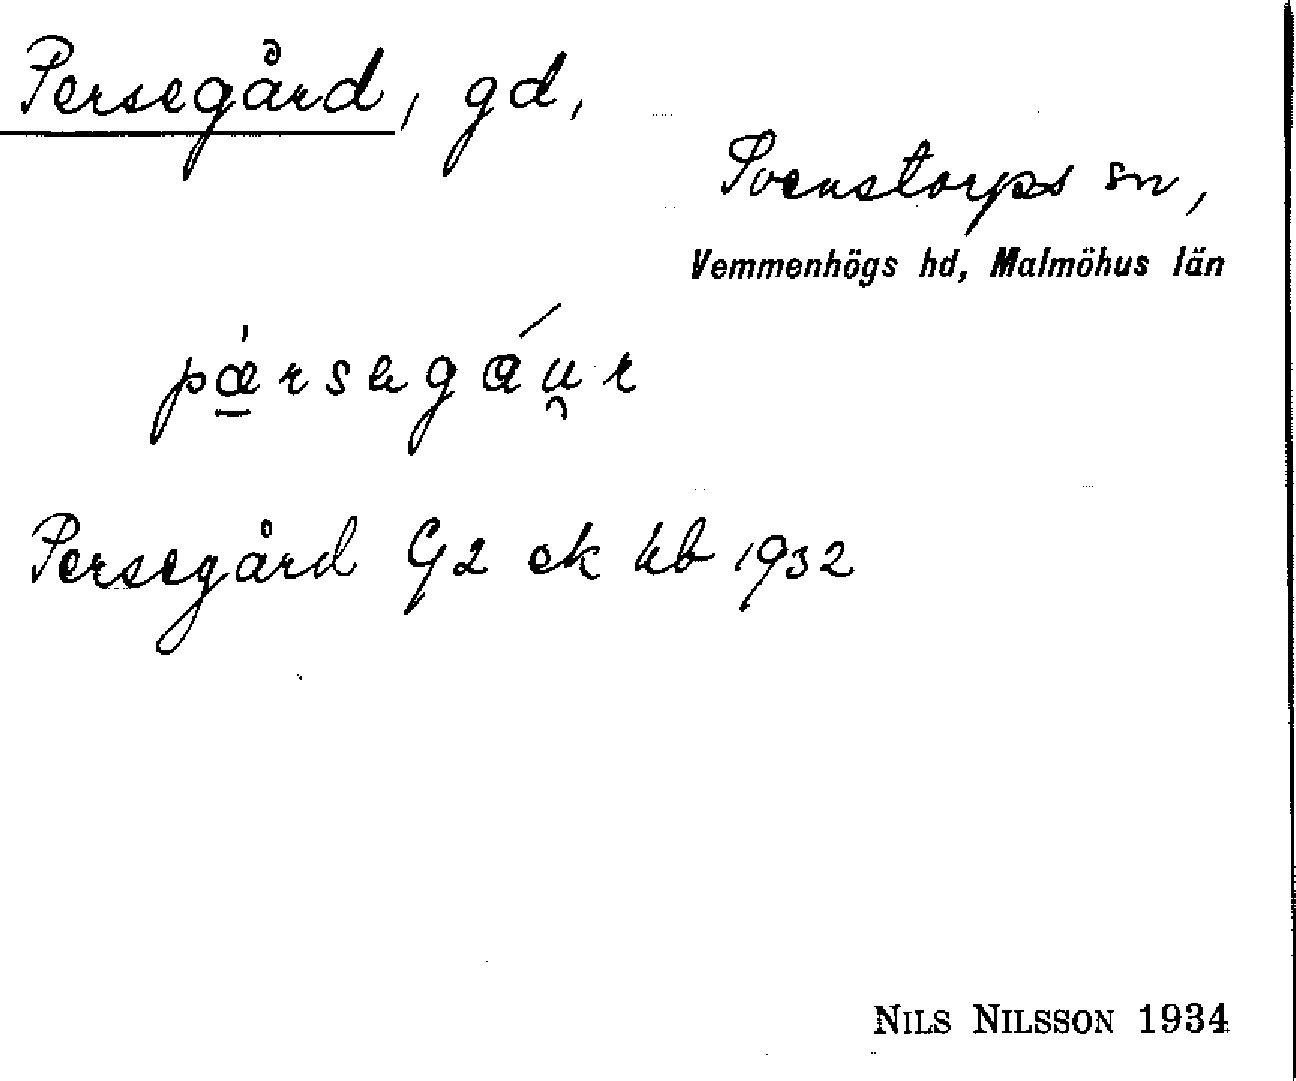 Persegård, gd,
Svenstorps sn,
Vemmenhögs hd, Malmöhus län
pæ̱̀rsegáu̯r
Persegård G2 ek kb 1932
NILS NILSSON 1934